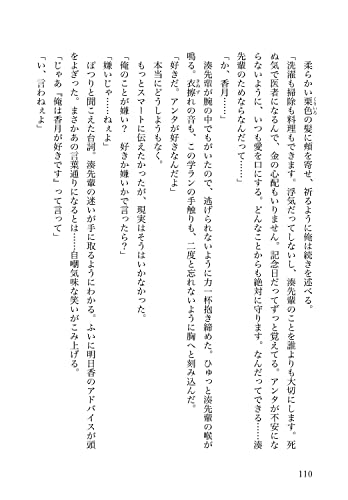 柔らかい栗色の髪に頬を寄せ、祈るように俺は続きを述べる。
「洗濯も掃除も料理もできます。浮気だってしないし、湊先輩のことを誰よりも大切にします。死
ぬ気で医者になるんで、金の心配もいりません。記念日だってずっと覚えてる。アンタが不安にな
らないように、いつも愛を口にする。どんなことからも絶対に守ります。なんだってできる……湊
先輩のためならなんだって……」
「か、香月……」
湊先輩が腕の中でもがいたので、逃げられないように力一杯抱き締めた。ひゅっと湊先輩の喉が
鳴る。衣擦れの音も、この学ランの手触りも、二度と忘れないように胸へと刻み込んだ。
「好きだ。アンタが好きなんだよ」
本当にどうしようもなく。
もっとスマートに伝えたかったが、現実はそうはいかなかった。
「俺のことが嫌い？　好きか嫌いかで言ったら？」
「嫌いじゃ……ねぇよ」
ぽつりと聞こえた台詞。湊先輩の迷いが手に取るようにわかる。ふいに明日香のアドバイスが頭
をよぎった。まさかあの言葉通りになるとは……自嘲気味な笑いがこみ上げる。
「じゃあ『俺は香月が好きです』って言って」
「い、言わねぇよ」
110